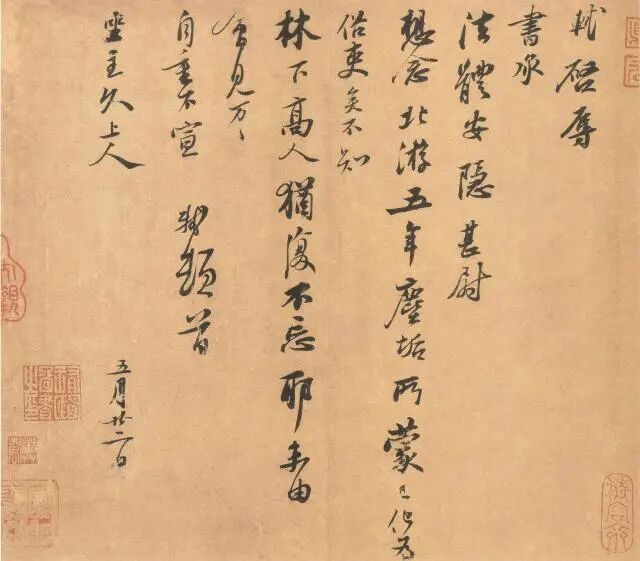 軾啓辱
書承
法體安隱甚尉
想念北游五年塵垢所蒙已化為
俗吏矣不知
林下高人猶復不忘耶未由
會見万々
自重不宣 軾頓首
坐主久上人
五月廿二日